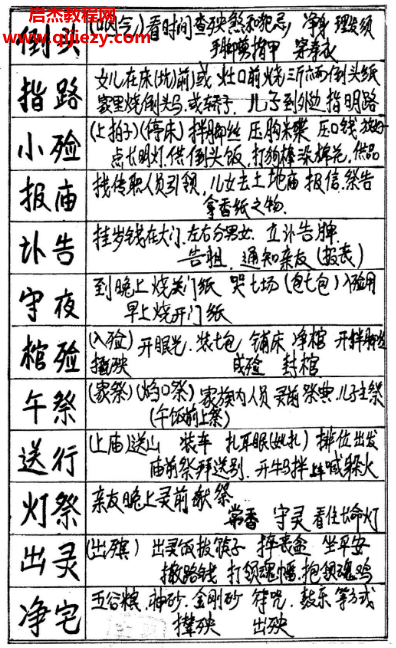 后杰教程网
www.qiujiezy.com
倒头
(咽气)看时间查殃煞和犯忌 净身 理发须
手脚剪指甲 穿寿衣
指路
女儿在床(地)前或灶口前烧三斤六两倒头纸
家里烧倒头马或轿子 儿子到外边指明路
小殓
(上拍子)(停床)拌脚丝 压胸米浆 压口钱
点长明灯.供倒头饭,打狗棒 棉花,供品
报庙
找传职人员引领,儿女去土地庙报信,祭告
拿香纸之物.
讣告
挂岁钱在大门,左右分男女 立讣告牌
告祖 通知亲友 (报丧)
守夜
到晚上烧关门纸 哭七场(包七包)入殓用
早上烧开门纸
棺殓
(入殓)开眼光.装七包 铺床 净棺 开拌脚丝
撵殃 成殓 封棺
午祭
(家祭)(焰口祭)家族内人员灵前祭典,儿子主祭
(午饭前上祭)
送行
(上庙)送山 装车 扎耳眼(处扎) 排位出发
庙前祭拜送别.开牛马拌 喊躲火
灯祭
亲友晚上灵前献祭
常香 守灵 看住长命灯
出灵
(出殡)出灵饭拔筷子 摔丧盆 坐平安
撒路钱 打领魂幡.抱领魂鸡
净宅
五谷粮 神砂.金刚砂 符咒.鼓乐等方式
撵殃 出殃